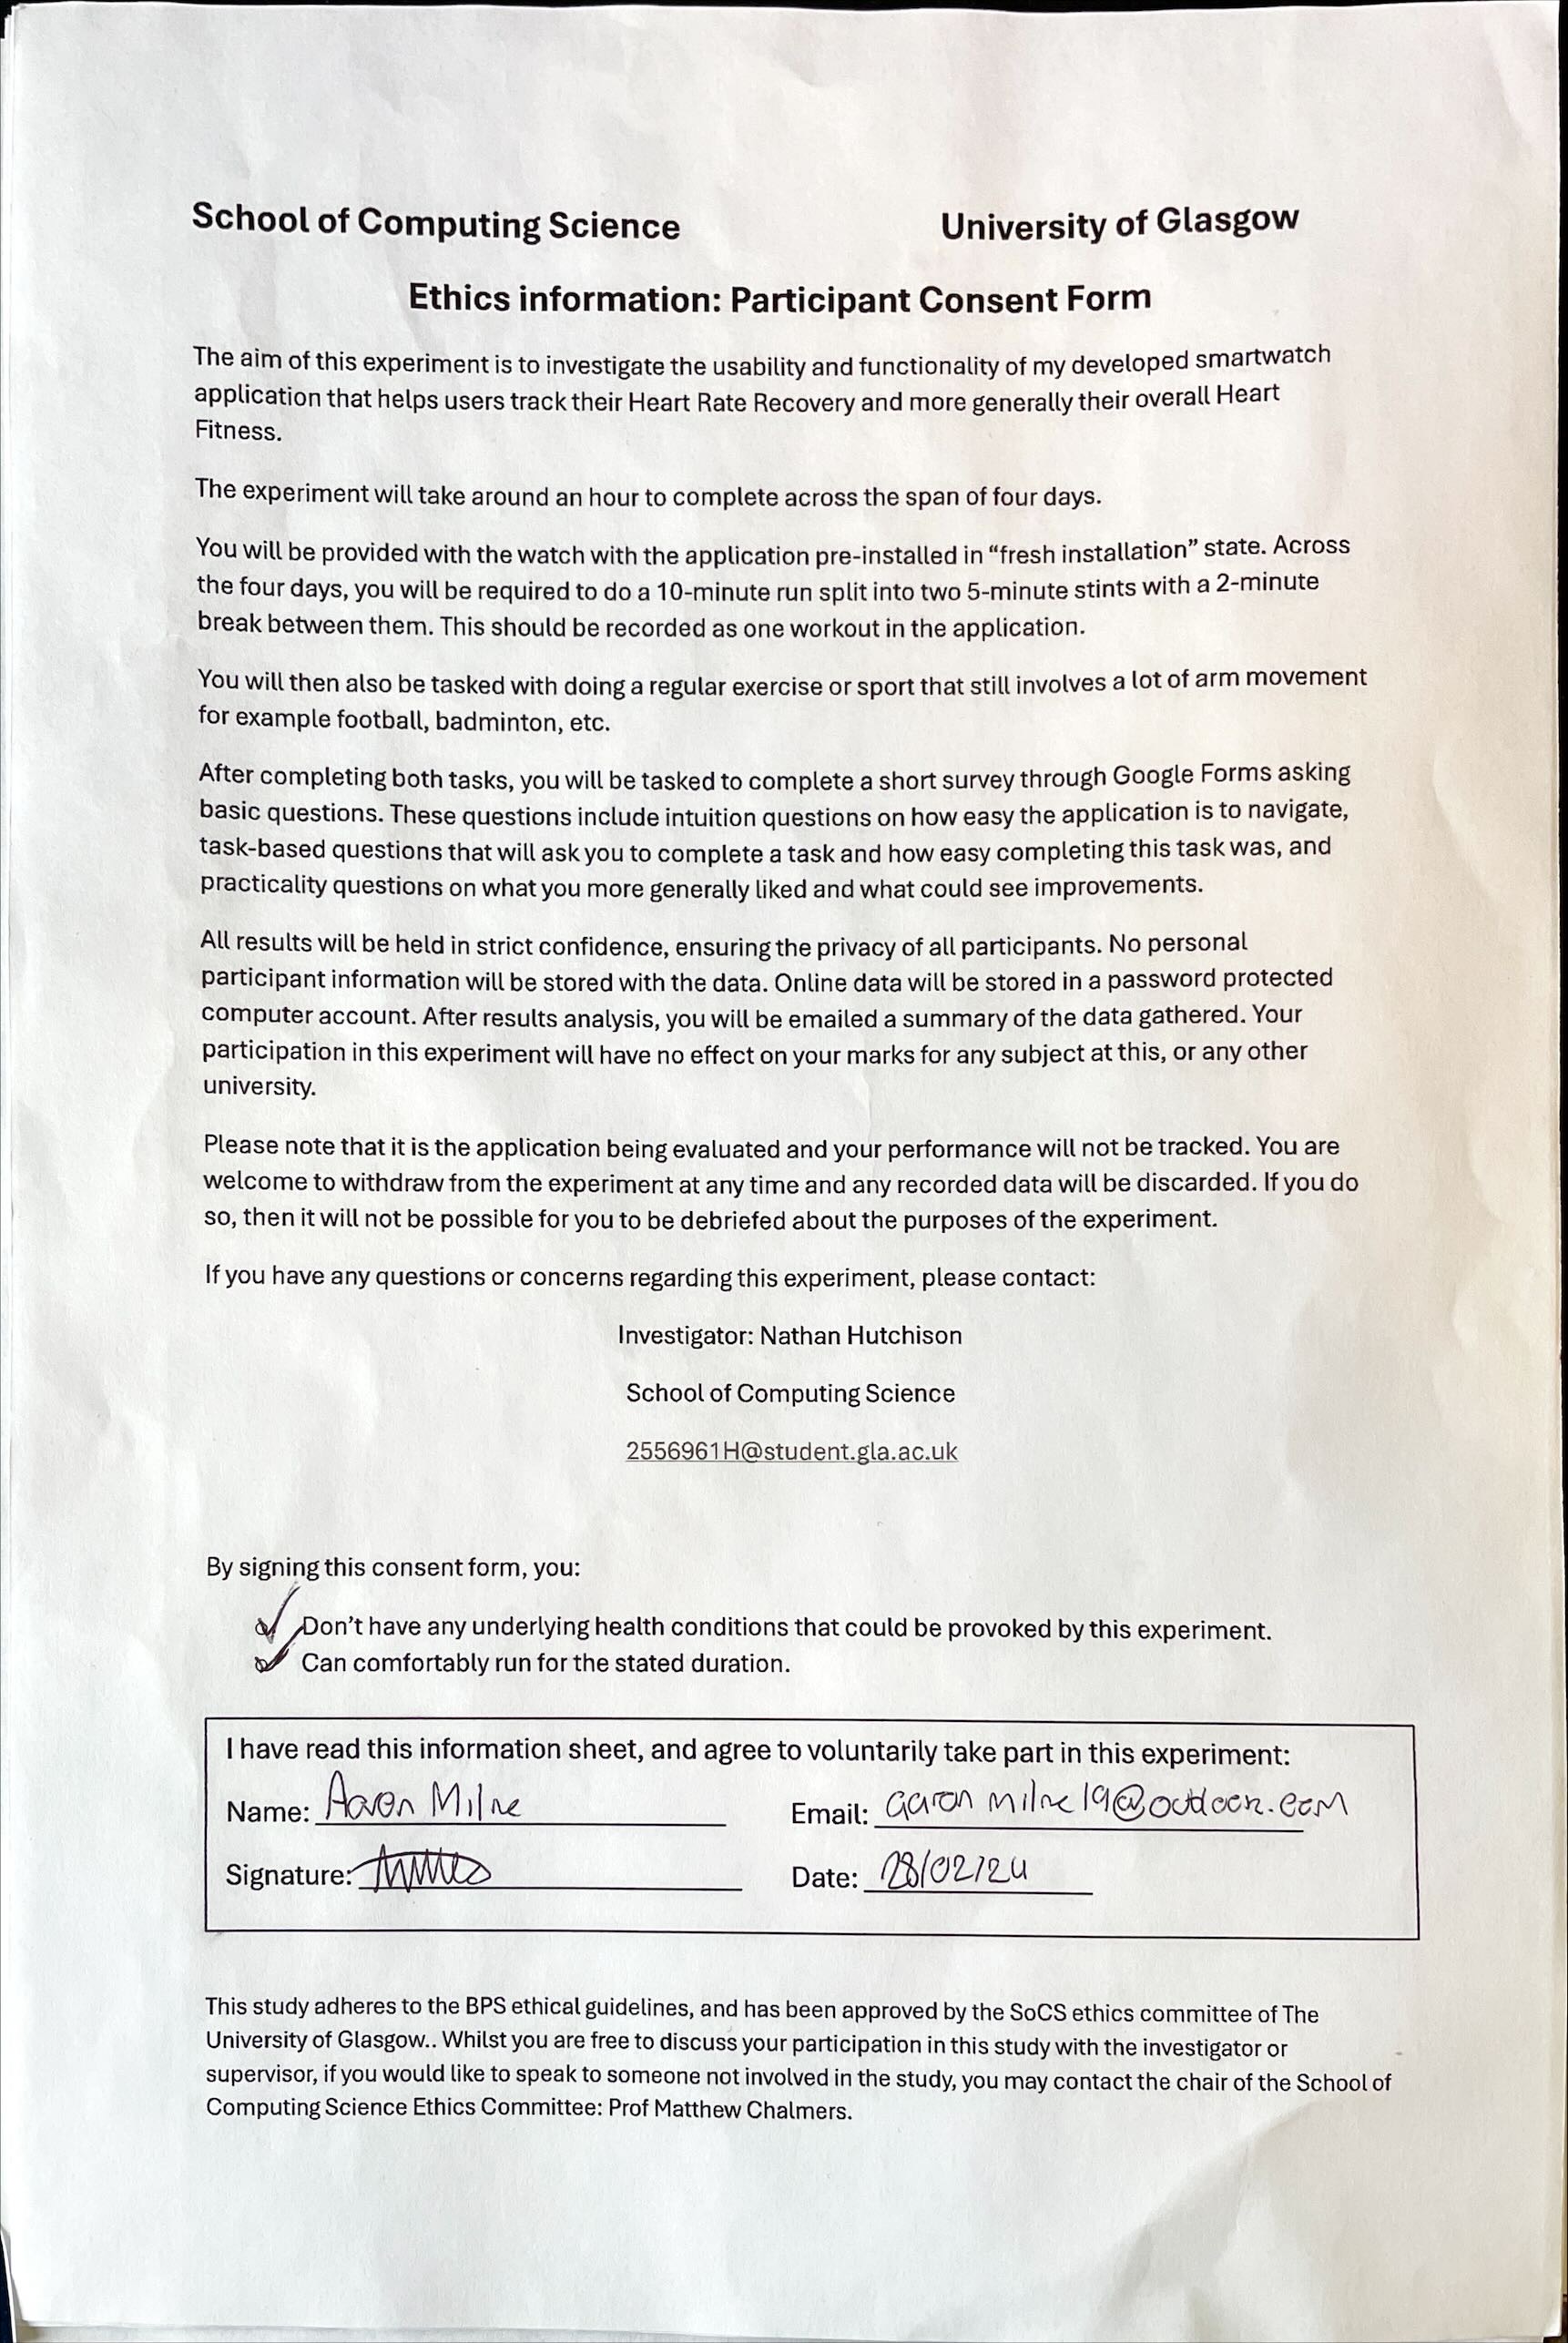 School of Computing Science University of Glasgow
Ethics information: Participant Consent Form
The aim of this experiment is to investigate the usability and functionality of my developed smartwatch
application that helps users track their Heart Rate Recovery and more generally their overall Heart
Fitness.
The experiment will take around an hour to complete across the span of four days.
You will be provided with the watch with the application pre-installed in “fresh installation” state. Across
the four days, you will be required to do a 10-minute run split into two 5-minute stints with a 2-minute
break between them. This should be recorded as one workout in the application.
You will then also be tasked with doing a regular exercise or sport that still involves a lot of arm movement
for example football, badminton, etc.
After completing both tasks, you will be tasked to complete a short survey through Google Forms asking
basic questions. These questions include intuition questions on how easy the application is to navigate,
task-based questions that will ask you to complete a task and how easy completing this task was, and
practicality questions on what you more generally liked and what could see improvements.
All results will be held in strict confidence, ensuring the privacy of all participants. No personal
participant information will be stored with the data. Online data will be stored in a password protected
computer account. After results analysis, you will be emailed a summary of the data gathered. Your
participation in this experiment will have no effect on your marks for any subject at this, or any other
university.
Please note that it is the application being evaluated and your performance will not be tracked. You are
welcome to withdraw from the experiment at any time and any recorded data will be discarded. If you do
so, then it will not be possible for you to be debriefed about the purposes of the experiment.
If you have any questions or concerns regarding this experiment, please contact:
Investigator: Nathan Hutchison
School of Computing Science
2556961H@student.gla.ac.uk
By signing this consent form, you:
Don’t have any underlying health conditions that could be provoked by this experiment.
Can comfortably run for the stated duration.
I have read this information sheet, and agree to voluntarily take part in this experiment:
Name: Aaron Milne Email: aaronmilne19@outlook.com
Signature: Date: 28/02/24
This study adheres to the BPS ethical guidelines, and has been approved by the SoCS ethics committee of The
University of Glasgow.. Whilst you are free to discuss your participation in this study with the investigator or
supervisor, if you would like to speak to someone not involved in the study, you may contact the chair of the School of
Computing Science Ethics Committee: Prof Matthew Chalmers.